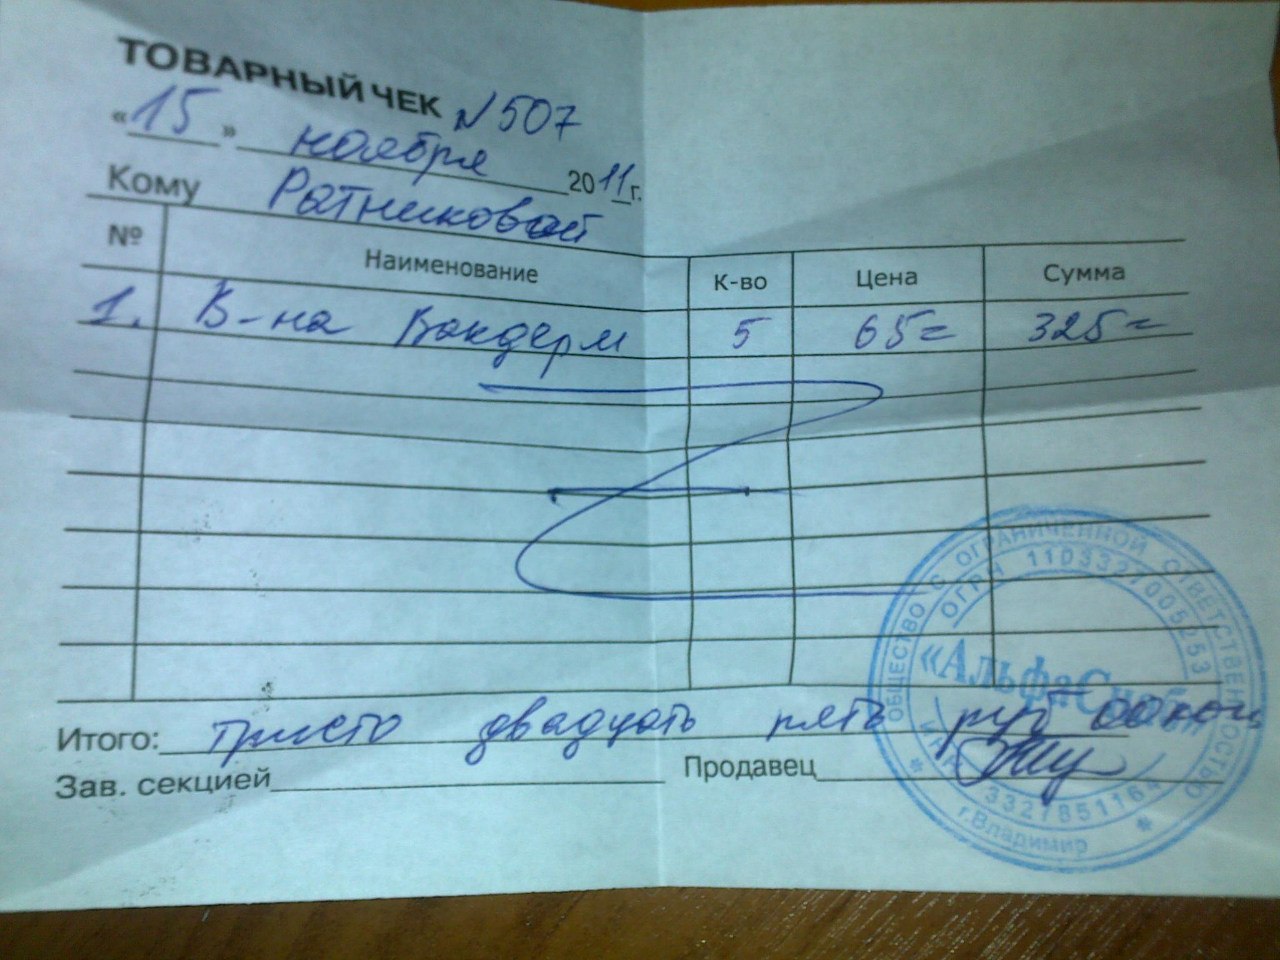 ТОВАРНЫЙ ЧЕК N 507
«15» ноября 2011 г.
Кому Ратниковой
№ Наименование К-во Цена Сумма
1. В-на Вакдерм 5 65= 325=
Итого: Тристо двадцать пять руб 00 коп
Зав. секцией Продавец
ОБЩЕСТВО С ОГРАНИЧЕННОЙ ОТВЕТСТВЕННОСТЬЮ
ОГРН 1103327005253
«АльфаСнаб»
ИНН 3327851164
г.Владимир